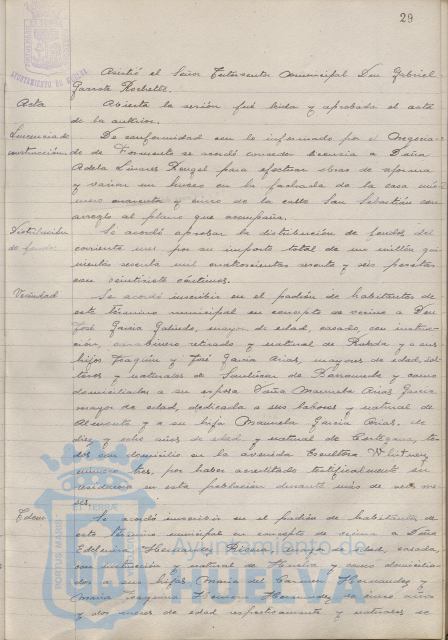 29
AYUNTAMIENTO DE HUELVA
Asistió el Señor Interventor municipal Don Gabriel
Garrote Rochelle.
Acta Abierta la sesión fué leida y aprobada el acta
de la anterior.
Licencia de De conformidad con lo informado por el Negocia-
construcción do de Fomento se acordó conceder licencia a Doña
Adela Linares Rengel para efectuar obras de reforma
y variar un hueco en la fachada de la casa nú-
mero cuarenta y cinco de la calle San Sebastián con
arreglo al plano que acompaña.
Distribución Se acordó aprobar la distribución de fondos del
de fondos corriente mes por su importe total de un millón qui-
nientas sesenta mil cuatrocientas sesenta y seis pesetas
con veintisiete céntimos.
Vecindad Se acordó inscribir en el padrón de habitantes de
este término municipal en concepto de vecino a Don
José García Galindo, mayor de edad, casado, con instruc-
ción, carabinero retirado y natural de y a sus
hijos Joaquín y José García Arias, mayores de edad, sol-
teros y naturales de Sanlúcar de Barrameda y como
domiciliados a su esposa Doña Manuela Arias García
mayor de edad, dedicada a sus labores y natural de
y a su hija Manuela García Arias, de
diez y ocho años de edad y natural de Cortegana, to-
dos con domicilio en la avenida Escultora Whitney
número tres, por haber acreditado testificalmente su
residencia en esta población durante más de seis me-
ses.
Idem Se acordó inscribir en el padrón de habitantes de
este término municipal en concepto de vecina a Doña
Hernández mayor de edad, casada,
con instrucción y natural de Huelva y como domicilia-
dos a sus hijas María del Carmen Hernández y
María Hernández, de cinco años
y dos meses de edad respectivamente y naturales de
Ayuntamiento de
HUELVA